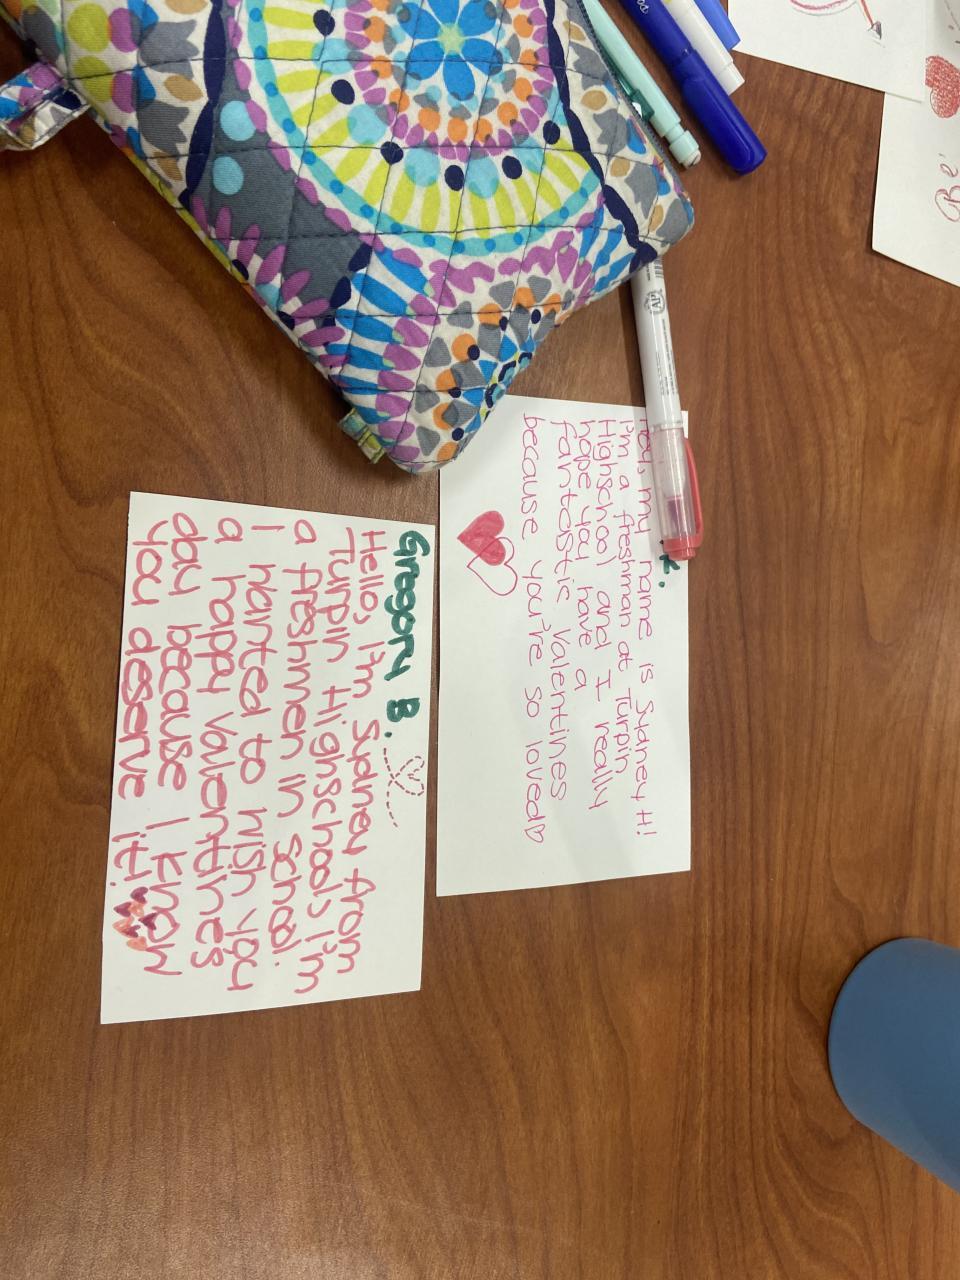 K.
my name is Sydney H!
I'm a freshman at Turpin
Highschool and I really
hope you have a
fantestic Valentines
because you're so loved♡
Gregory B.
Hello, I'm Sydney from
Turpin Highschool, I'm
a freshmen in school.
I wanted to wish you
a happy Valentines
day because I know
you deserve it!
Be
AP